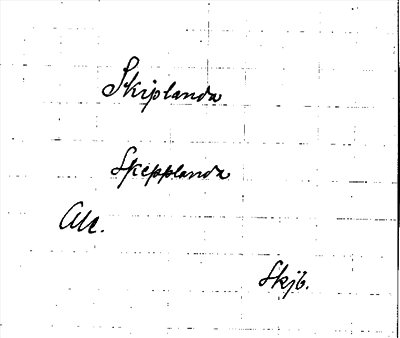 Skiplanda
Skepplanda
Ale.
Skjb.